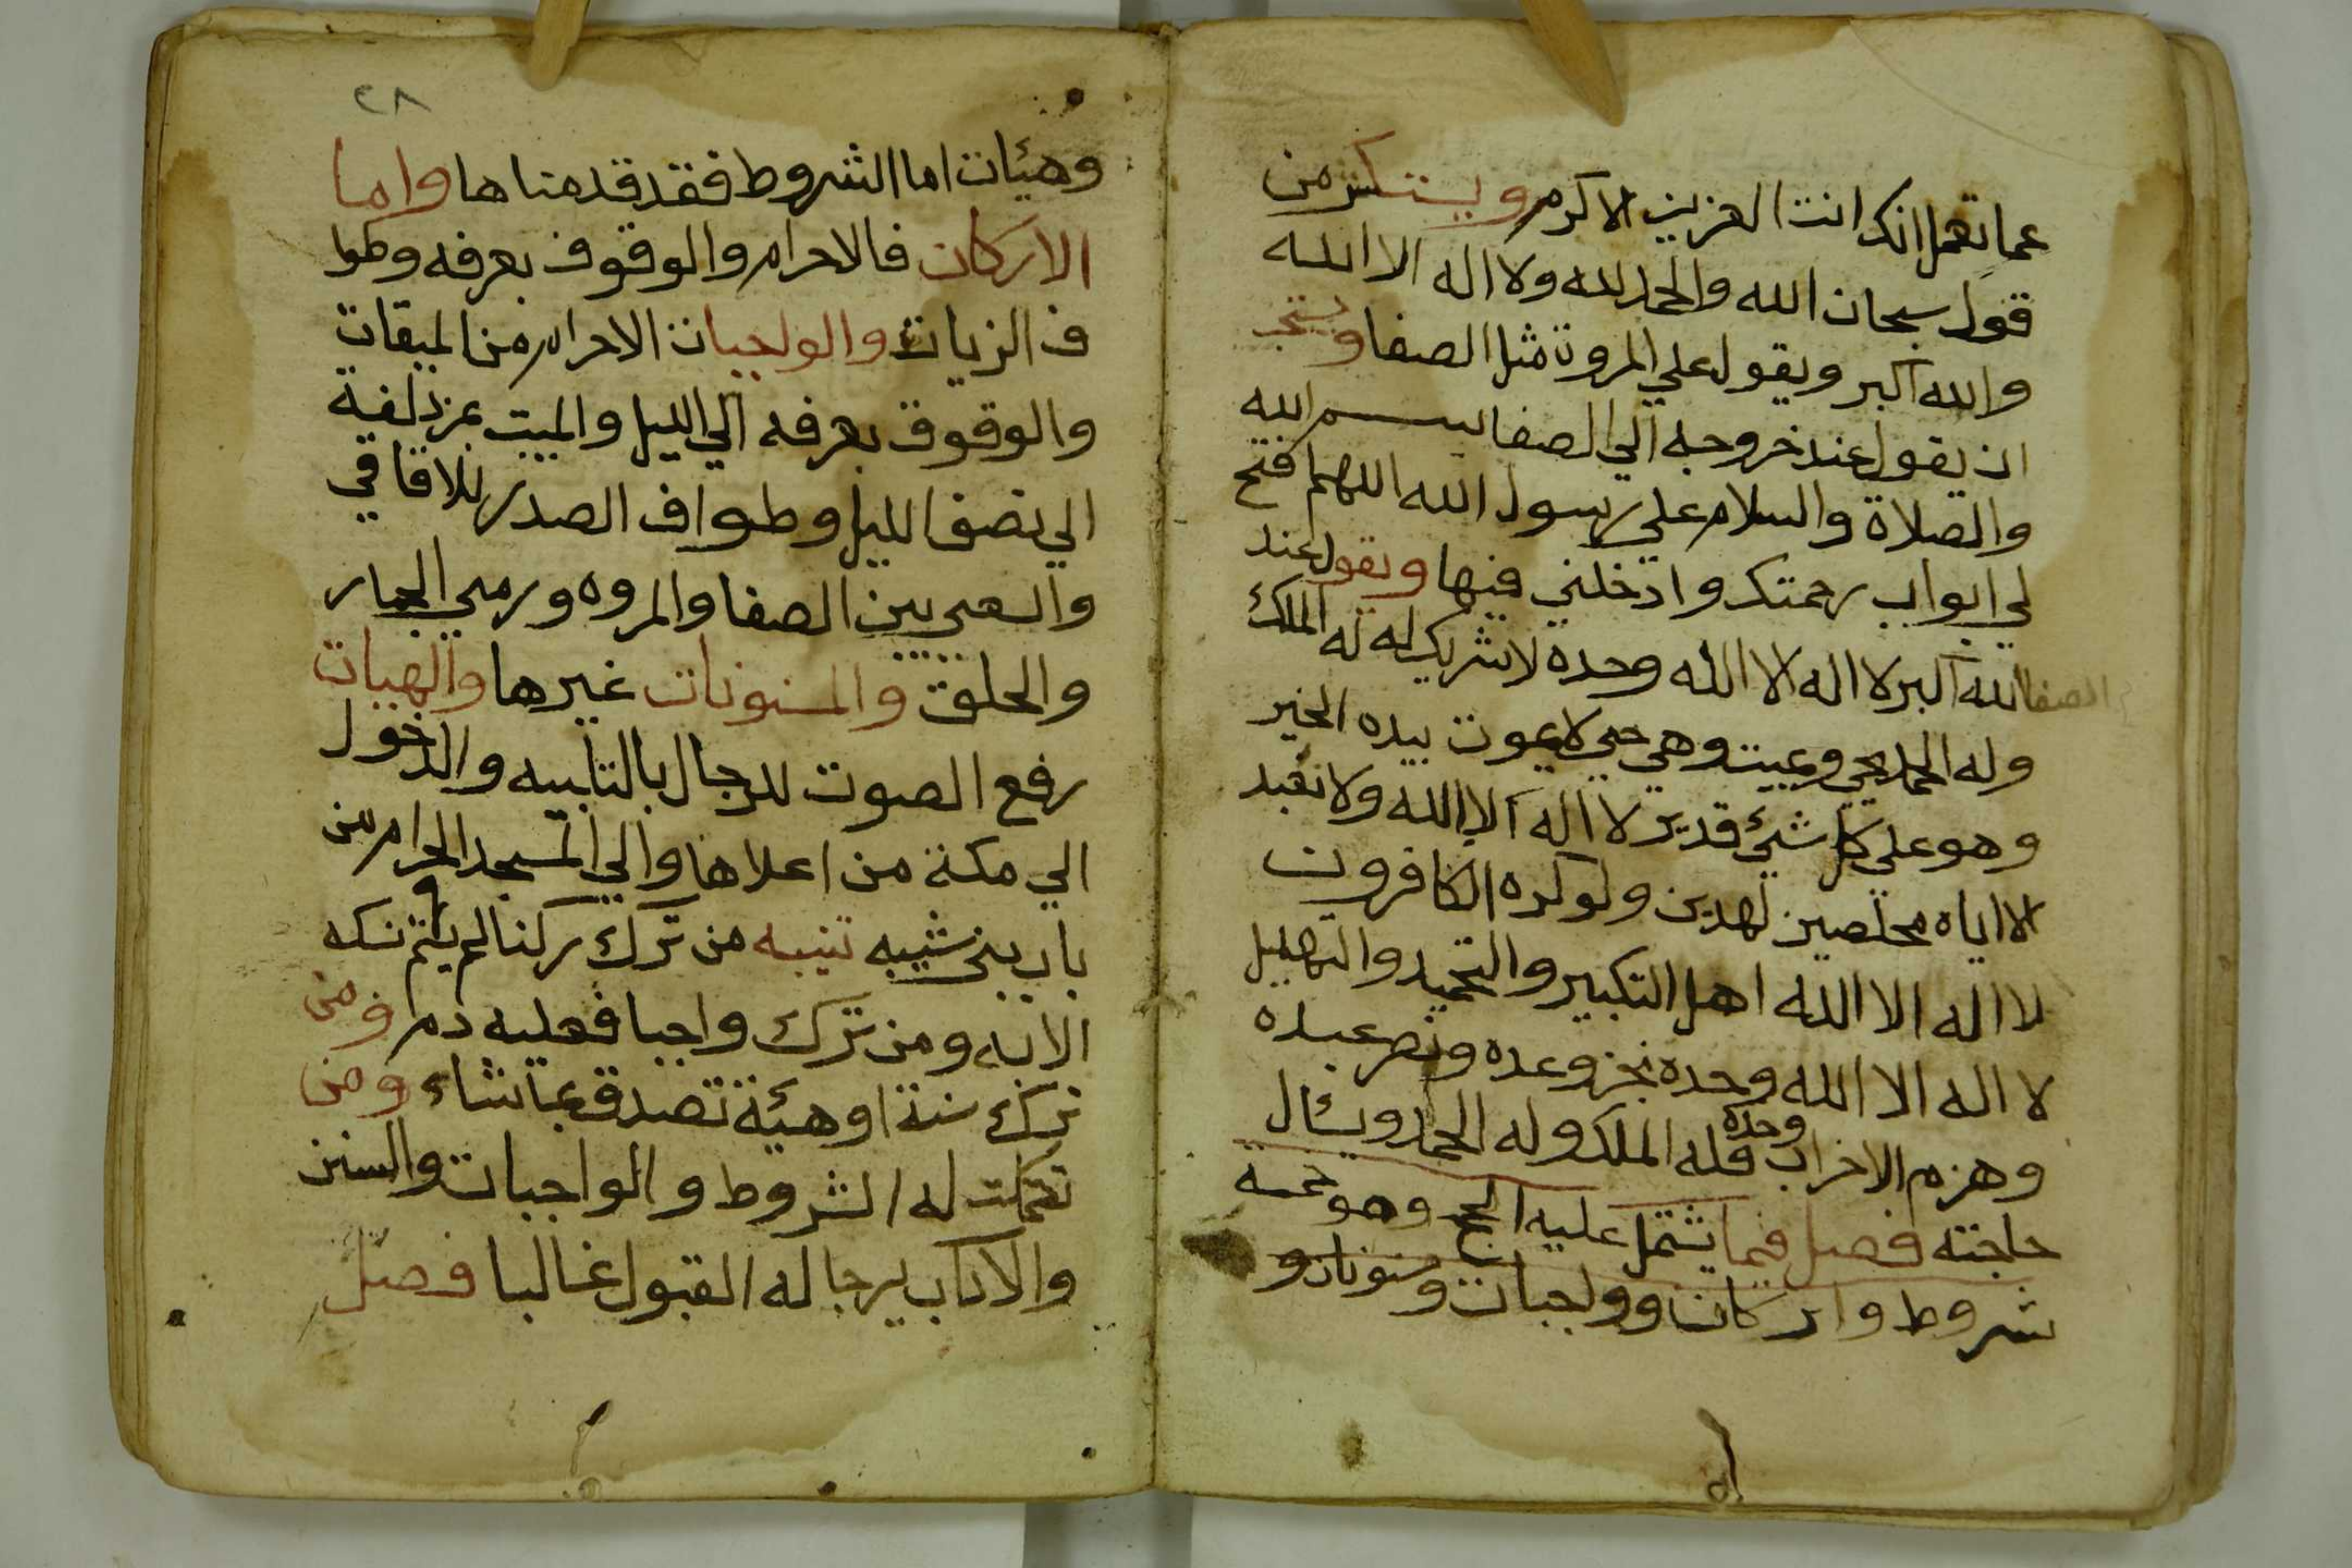 عما تعمل انك انت العزيز الاكرم ويستكثر من
قول سبحان الله والحمد لله ولا اله الا الله
والله اكبر ويقول علي المروة مثل الصفا ويستحب
ان يقول عند خروجه الي الصفا بسم الله
والصلاة والسلام علي رسول الله اللهم افتح
لي ابواب رحمتك وادخلني فيها ويقول عند
الصفا الله اكبر لا اله الا الله وحده لا شريك له له الملك
وله الحمد يحي ويميت وهي حي لا يموت بيده الخير
وهو علي كل شيئ قدير لا اله الا الله ولا نعبد
الا اياه مخلصين له الدين ولو كره الكافرون
لا اله الا الله اهل التكبير والتحميد والتهليل
لا اله الا الله وحده نجز وعده ونصر عبده
وهزم الاخراب وحده فله الملك وله الحمد ويسئال
حاجته فصل فيما يشتمل عليه الحج وهو خمسة
شروط واركان وواجبات ومسنونات و
٢٨
وهيئات اما الشروط فقد قدمناها واما
الاركان فالاحرام والوقوف بعرفه وطوا
ف الزيات والواجبات الاحرام من الميقات
والوقوف بعرفه الي الليل والمبيت بمزدلفة
الي نصف الليل وطواف الصدر للافاقي
والسعي بين الصفا والمروه ورمي الجمار
والحلق والمسنونات غيرها والهيات
رفع الصوت للرجال بالتلبيه والدخول
الي مكة من اعلاها والي المسجد الحرام من
باب بني شيبه تنبيه من ترك ركنا لم يتم نسكه
الا به ومن ترك واجبا فعليه دم ومن
ترك سنة او هيئة تصدق بما شاء ومن
تكملت له الشروط والواجبات والسنن
والاداب يرجا له القبول غالبا فصل